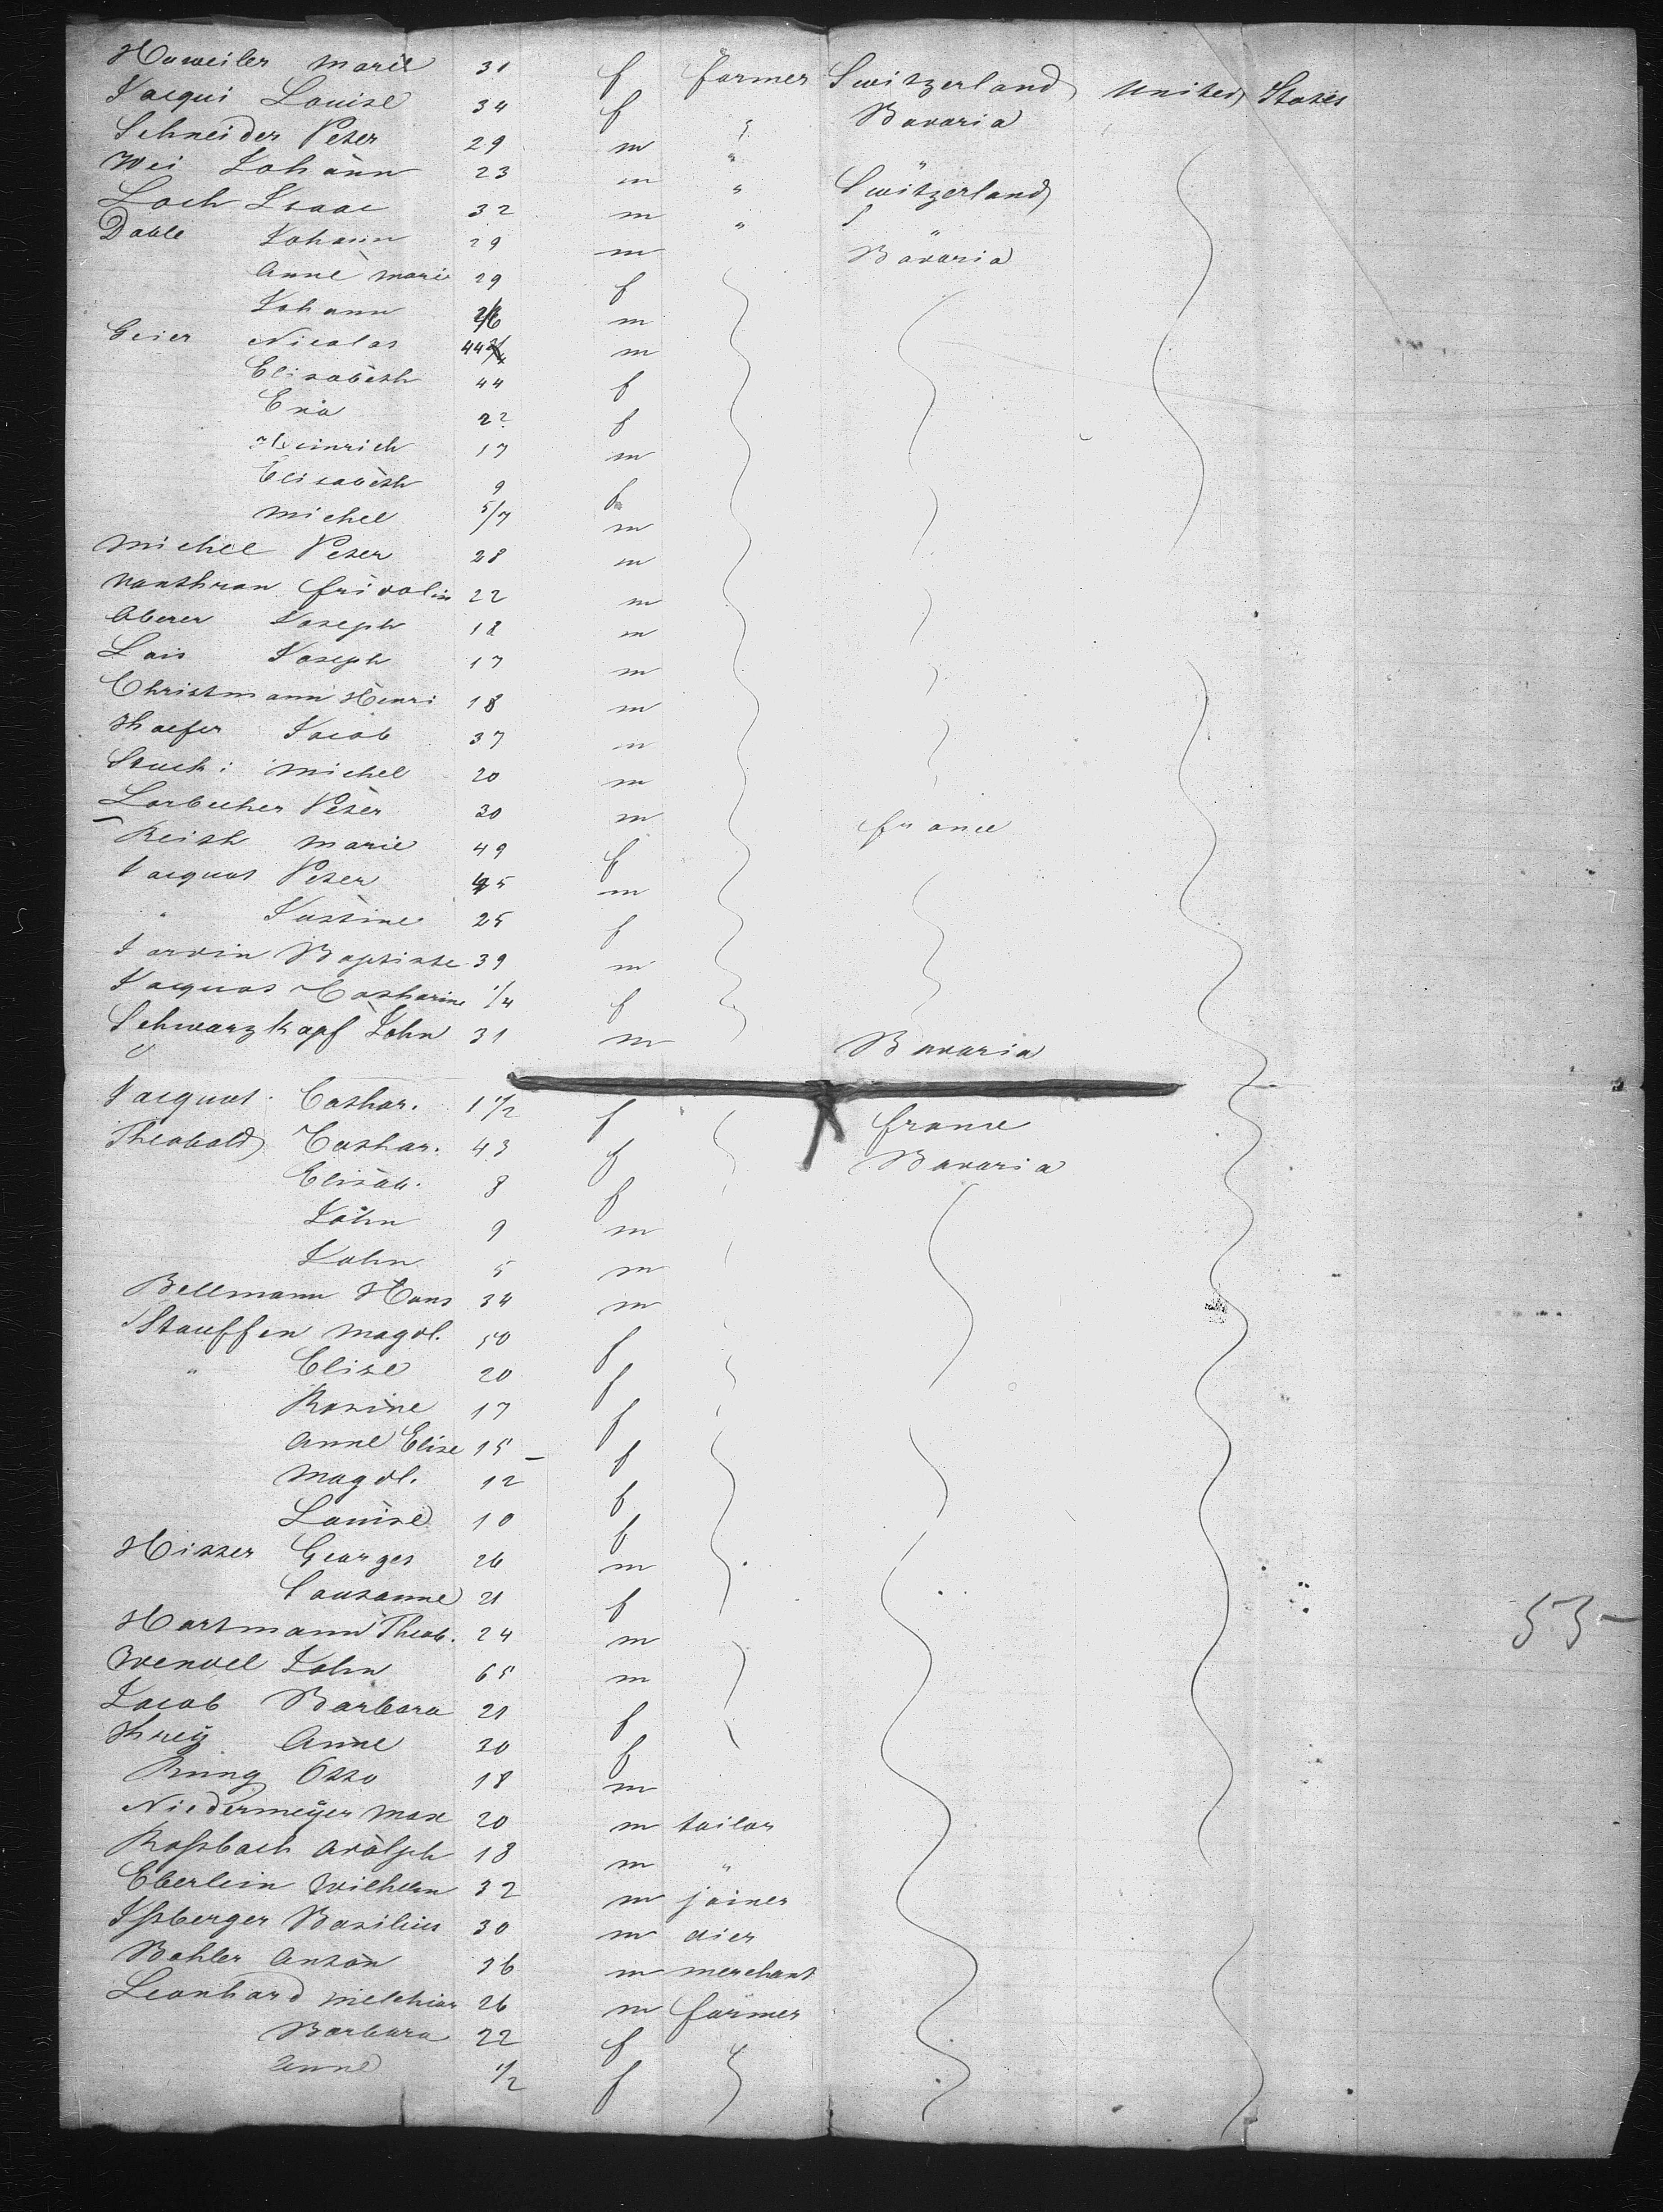 Howeiler Marie 31 f farmer Switzerland United States
Jacqui Louise 34 f " Bavaria
Schneider Peter 29 m " "
Wei Johann 23 m " Switzerland
Loch Isaac 32 m " "
Dable Johann 29 m Bavaria
Anne Marie 29 f
Johann m
Geier Nicolas 44 m
Elisabeth 44 f
Eva 22 f
Heinrich 17 m
Elisabeth 9 f
Michel 5/7 m
Michel Peter 28 m
Fridolin 22 m
Oberer Joseph 18 m
Lais Joseph 17 m
Christmann Henri 18 m
Jacob 37 m
Stucki Michel 20 m
Lorbecher Peter 30 m France
Reith Marie 49 f
Jacquot Peter 45 m
" Justine 25 f
Jarvin Baptiste 39 m
Jacquot Catharine 1/4 f
Schwarzkopf John 31 m Bavaria
Jacquot Cathar. 1 1/2 f " France
Theobald Cathar. 43 f Bavaria
Elisab. 8 f
John 9 m
John 5 m
Bellmann Hans 34 m
Stauffen Magdl. 50 f
" Elise 20 f
Rosine 17 f
Anne Elise 15 f
Magdl. 12 f
Louise 10 f
Hisser Georges 26 m
Sousanne 21 f
Hartmann Theob. 24 m
Wendel John 65 m
Jacob Barbara 21 f
Anne 30 f
Rung Otto 18 m
Niedermeyer Max 20 m tailor
Roßbach Adolph 18 m "
Eberlein Wilhelm 32 m joiner
Ißberger Basilius 30 m dier
Bohler Anton 36 m merchant
Leonhard Melchior 26 m farmer
Barbara 22 f
Anne 1/2 f
53